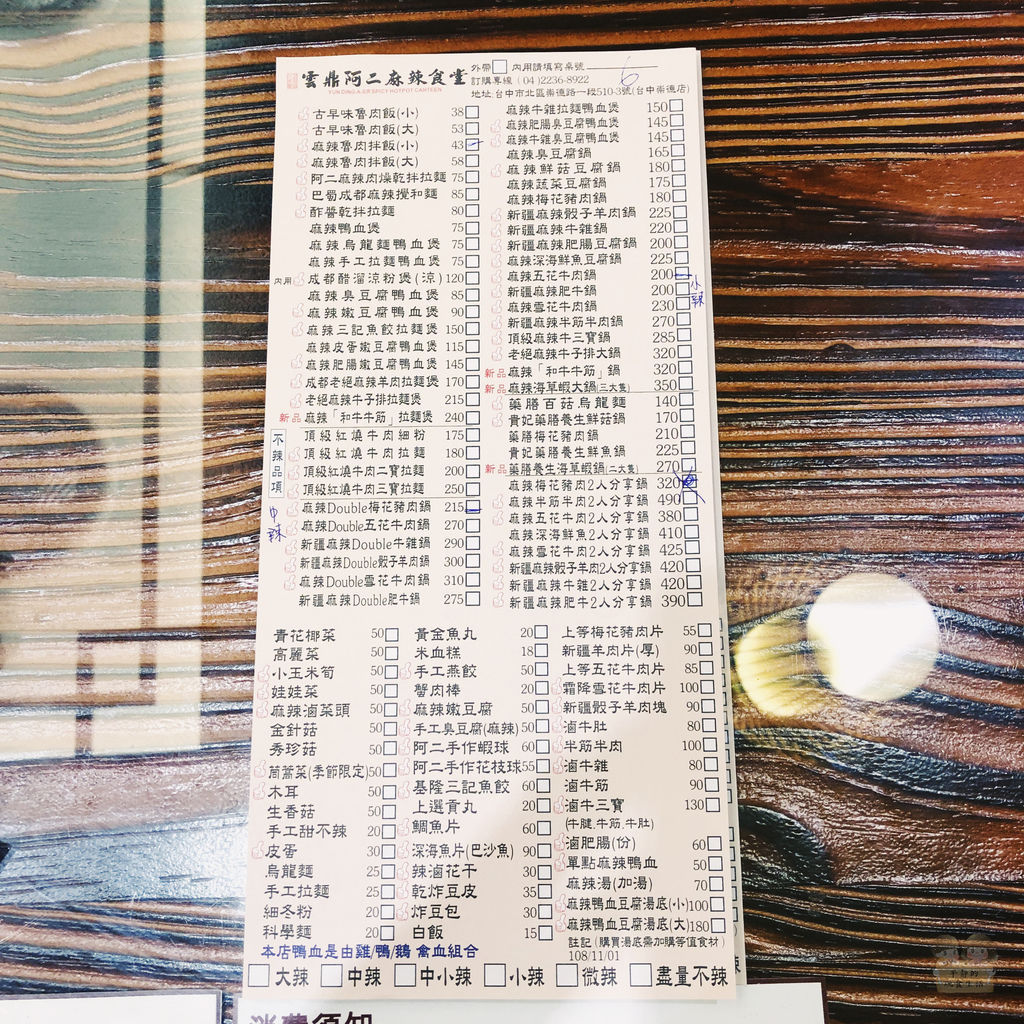 雲鼎阿二麻辣食堂
YUN DING A-ER SPICY HOTPOT CANTEEN
外帶 內用請填寫桌號 6
訂購專線 (04)2236-8922
地址:台中市北區崇德路一段510-3號(台中崇德店)
古早味魯肉飯(小) 38
古早味魯肉飯(大) 53
麻辣魯肉拌飯(小) 43
麻辣魯肉拌飯(大) 58
阿二麻辣肉燥乾拌拉麵 75
巴蜀成都麻辣攪和麵 85
酢醬乾拌拉麵 80
麻辣鴨血煲 75
麻辣烏龍麵鴨血煲 75
麻辣手工拉麵鴨血煲 75
內用 成都醋溜涼粉煲(涼) 120
麻辣臭豆腐鴨血煲 85
麻辣嫩豆腐鴨血煲 90
麻辣三記魚餃拉麵煲 150
麻辣皮蛋嫩豆腐鴨血煲 115
麻辣肥腸嫩豆腐鴨血煲 145
成都老繩麻辣羊肉拉麵 170
老繩麻辣牛子排拉麵煲 215
新品 麻辣「和牛牛筋」拉麵煲 240
不辣品項
頂級紅燒牛肉細粉 175
頂級紅燒牛肉拉麵 180
頂級紅燒牛肉二寶拉麵 200
頂級紅燒牛肉三寶拉麵 250
中辣
麻辣Double梅花豬肉鍋 215
麻辣Double五花牛肉鍋 270
新疆麻辣Double牛雜鍋 290
新疆麻辣Double骰子羊肉鍋 300
麻辣Double雪花牛肉鍋 310
新疆麻辣Double肥牛鍋 275
麻辣牛雜拉麵鴨血煲 150
麻辣肥腸臭豆腐鴨血煲 145
麻辣牛雜臭豆腐鴨血煲 145
麻辣臭豆腐鍋 165
麻辣鮮菇豆腐鍋 180
麻辣蔬菜豆腐鍋 175
麻辣梅花豬肉鍋 180
新疆麻辣骰子羊肉鍋 225
新疆麻辣牛雜鍋 220
新疆麻辣肥腸豆腐鍋 200
麻辣深海鮮魚豆腐鍋 225
麻辣五花牛肉鍋 200
小辣
新疆麻辣肥牛鍋 200
麻辣雪花牛肉鍋 230
新疆麻辣半筋半肉鍋 270
頂級麻辣牛三寶鍋 285
老繩麻辣牛子排大鍋 320
新品 麻辣「和牛牛筋」鍋 320
新品 麻辣海草蝦大鍋(三大隻) 350
藥膳百菇烏龍麵 140
貴妃藥膳養生鮮菇鍋 170
藥膳梅花豬肉鍋 210
貴妃藥膳養生鮮魚鍋 225
新品 藥膳養生海草蝦鍋(二大隻) 270
麻辣梅花豬肉2人分享鍋 320
麻辣半筋半肉2人分享鍋 490
麻辣五花牛肉2人分享鍋 380
麻辣深海鮮魚2人分享鍋 410
麻辣雪花牛肉2人分享鍋 425
新疆麻辣骰子羊肉2人分享鍋 420
新疆麻辣牛雜2人分享鍋 420
新疆麻辣肥牛2人分享鍋 390
青花椰菜 50
高麗菜 50
小玉米筍 50
娃娃菜 50
麻辣滷菜頭 50
金針菇 50
秀珍菇 50
茼蒿菜(季節限定) 50
木耳 50
生香菇 50
手工甜不辣 20
皮蛋 30
烏龍麵 25
手工拉麵 25
細冬粉 20
科學麵 20
黃金魚丸 20
米血糕 18
手工燕餃 50
蟹肉棒 20
麻辣嫩豆腐 50
手工臭豆腐(麻辣) 50
阿二手作蝦球 60
阿二手作花枝球 55
基隆三記魚餃 60
上選貢丸 20
鯛魚片 60
深海魚片(巴沙魚) 90
辣滷花干 30
乾炸豆皮 35
炸豆包 30
白飯 15
上等梅花豬肉片 55
新疆羊肉片(厚) 90
上等五花牛肉片 85
霜降雪花牛肉片 100
新疆骰子羊肉塊 90
滷牛肚 80
半筋半肉 100
滷牛雜 80
滷牛筋 90
滷牛三寶 130
(牛腱.牛筋.牛肚)
滷肥腸(份) 60
單點麻辣鴨血 50
麻辣湯(加湯) 70
麻辣鴨血豆腐湯底(小) 100
麻辣鴨血豆腐湯底(大) 180
註記(購買湯底需加購等值食材)
108/11/01
本店鴨血是由雞/鴨/鵝 禽血組合
大辣 中辣 中小辣 小辣 微辣 盡量不辣
消費須知